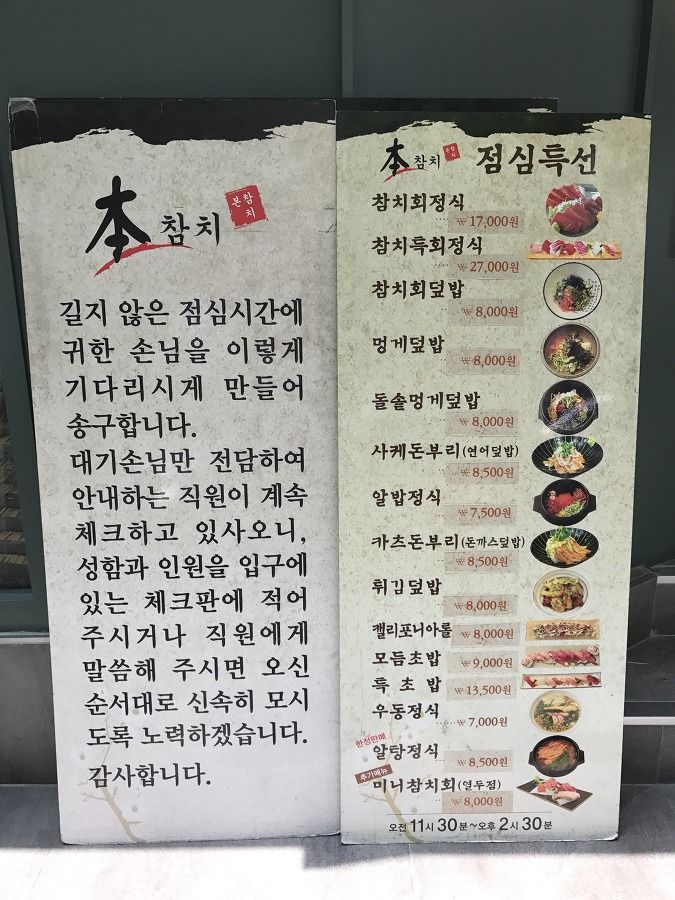 本 참치
본참치
길지 않은 점심시간에
귀한 손님을 이렇게
기다리시게 만들어
송구합니다.
대기손님만 전담하여
안내하는 직원이 계속
체크하고 있사오니,
성함과 인원을 입구에
있는 체크판에 적어
주시거나 직원에게
말씀해 주시면 오신
순서대로 신속히 모시
도록 노력하겠습니다.
감사합니다.
本 참치 본참치 점심특선
참치회정식
₩17,000원
참치특회정식
₩27,000원
참치회덮밥
₩8,000원
멍게덮밥
₩8,000원
돌솥멍게덮밥
₩8,000원
사케돈부리(연어덮밥)
₩8,500원
알밥정식
₩7,500원
카츠돈부리(돈까스덮밥)
₩8,500원
튀김덮밥
₩8,000원
캘리포니아롤 ₩8,000원
모듬초밥 ₩9,000원
특초밥 ₩13,500원
우동정식
₩7,000원
한정판매
알탕정식
₩8,500원
추가메뉴
미니참치회(열두점)
₩8,000원
오전 11시 30분~오후 2시 30분